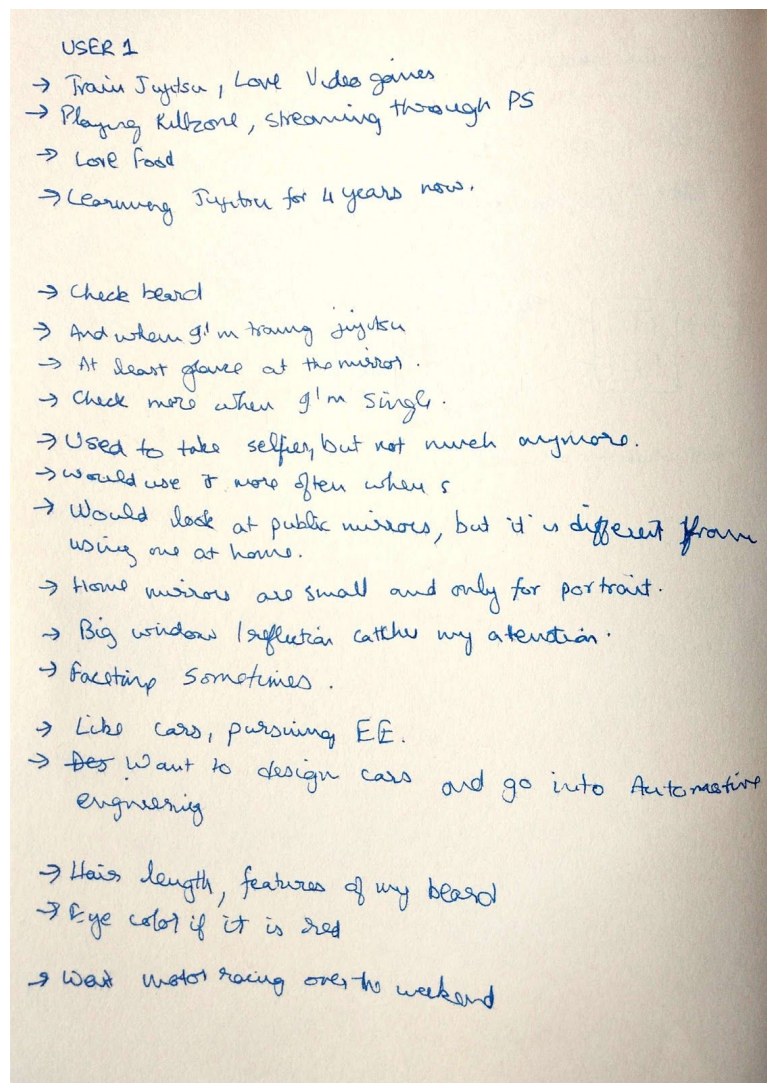 USER 1
→ Train Jujitsu, Love Video games
→ Playing Killzone, streaming through PS
→ Love food
→ Learning Jujitsu for 4 years now.
→ Check beard
→ And when I'm traing jiujitsu
→ At least glance at the mirror.
→ Check more when I'm single.
→ Used to take selfies, but not much anymore.
→ would use it more often when s
→ Would look at public mirrors, but it is different from
using one at home.
→ Home mirrors are small and only for portrait.
→ Big window / reflection catches my atention.
→ Facetime sometimes.
→ Like cars, pursuing EE.
→ Des Want to design cars and go into Automotive
engineering
→ Hair length, features of my beard
→ Eye color if it is red
→ Went motor racing over the weekend